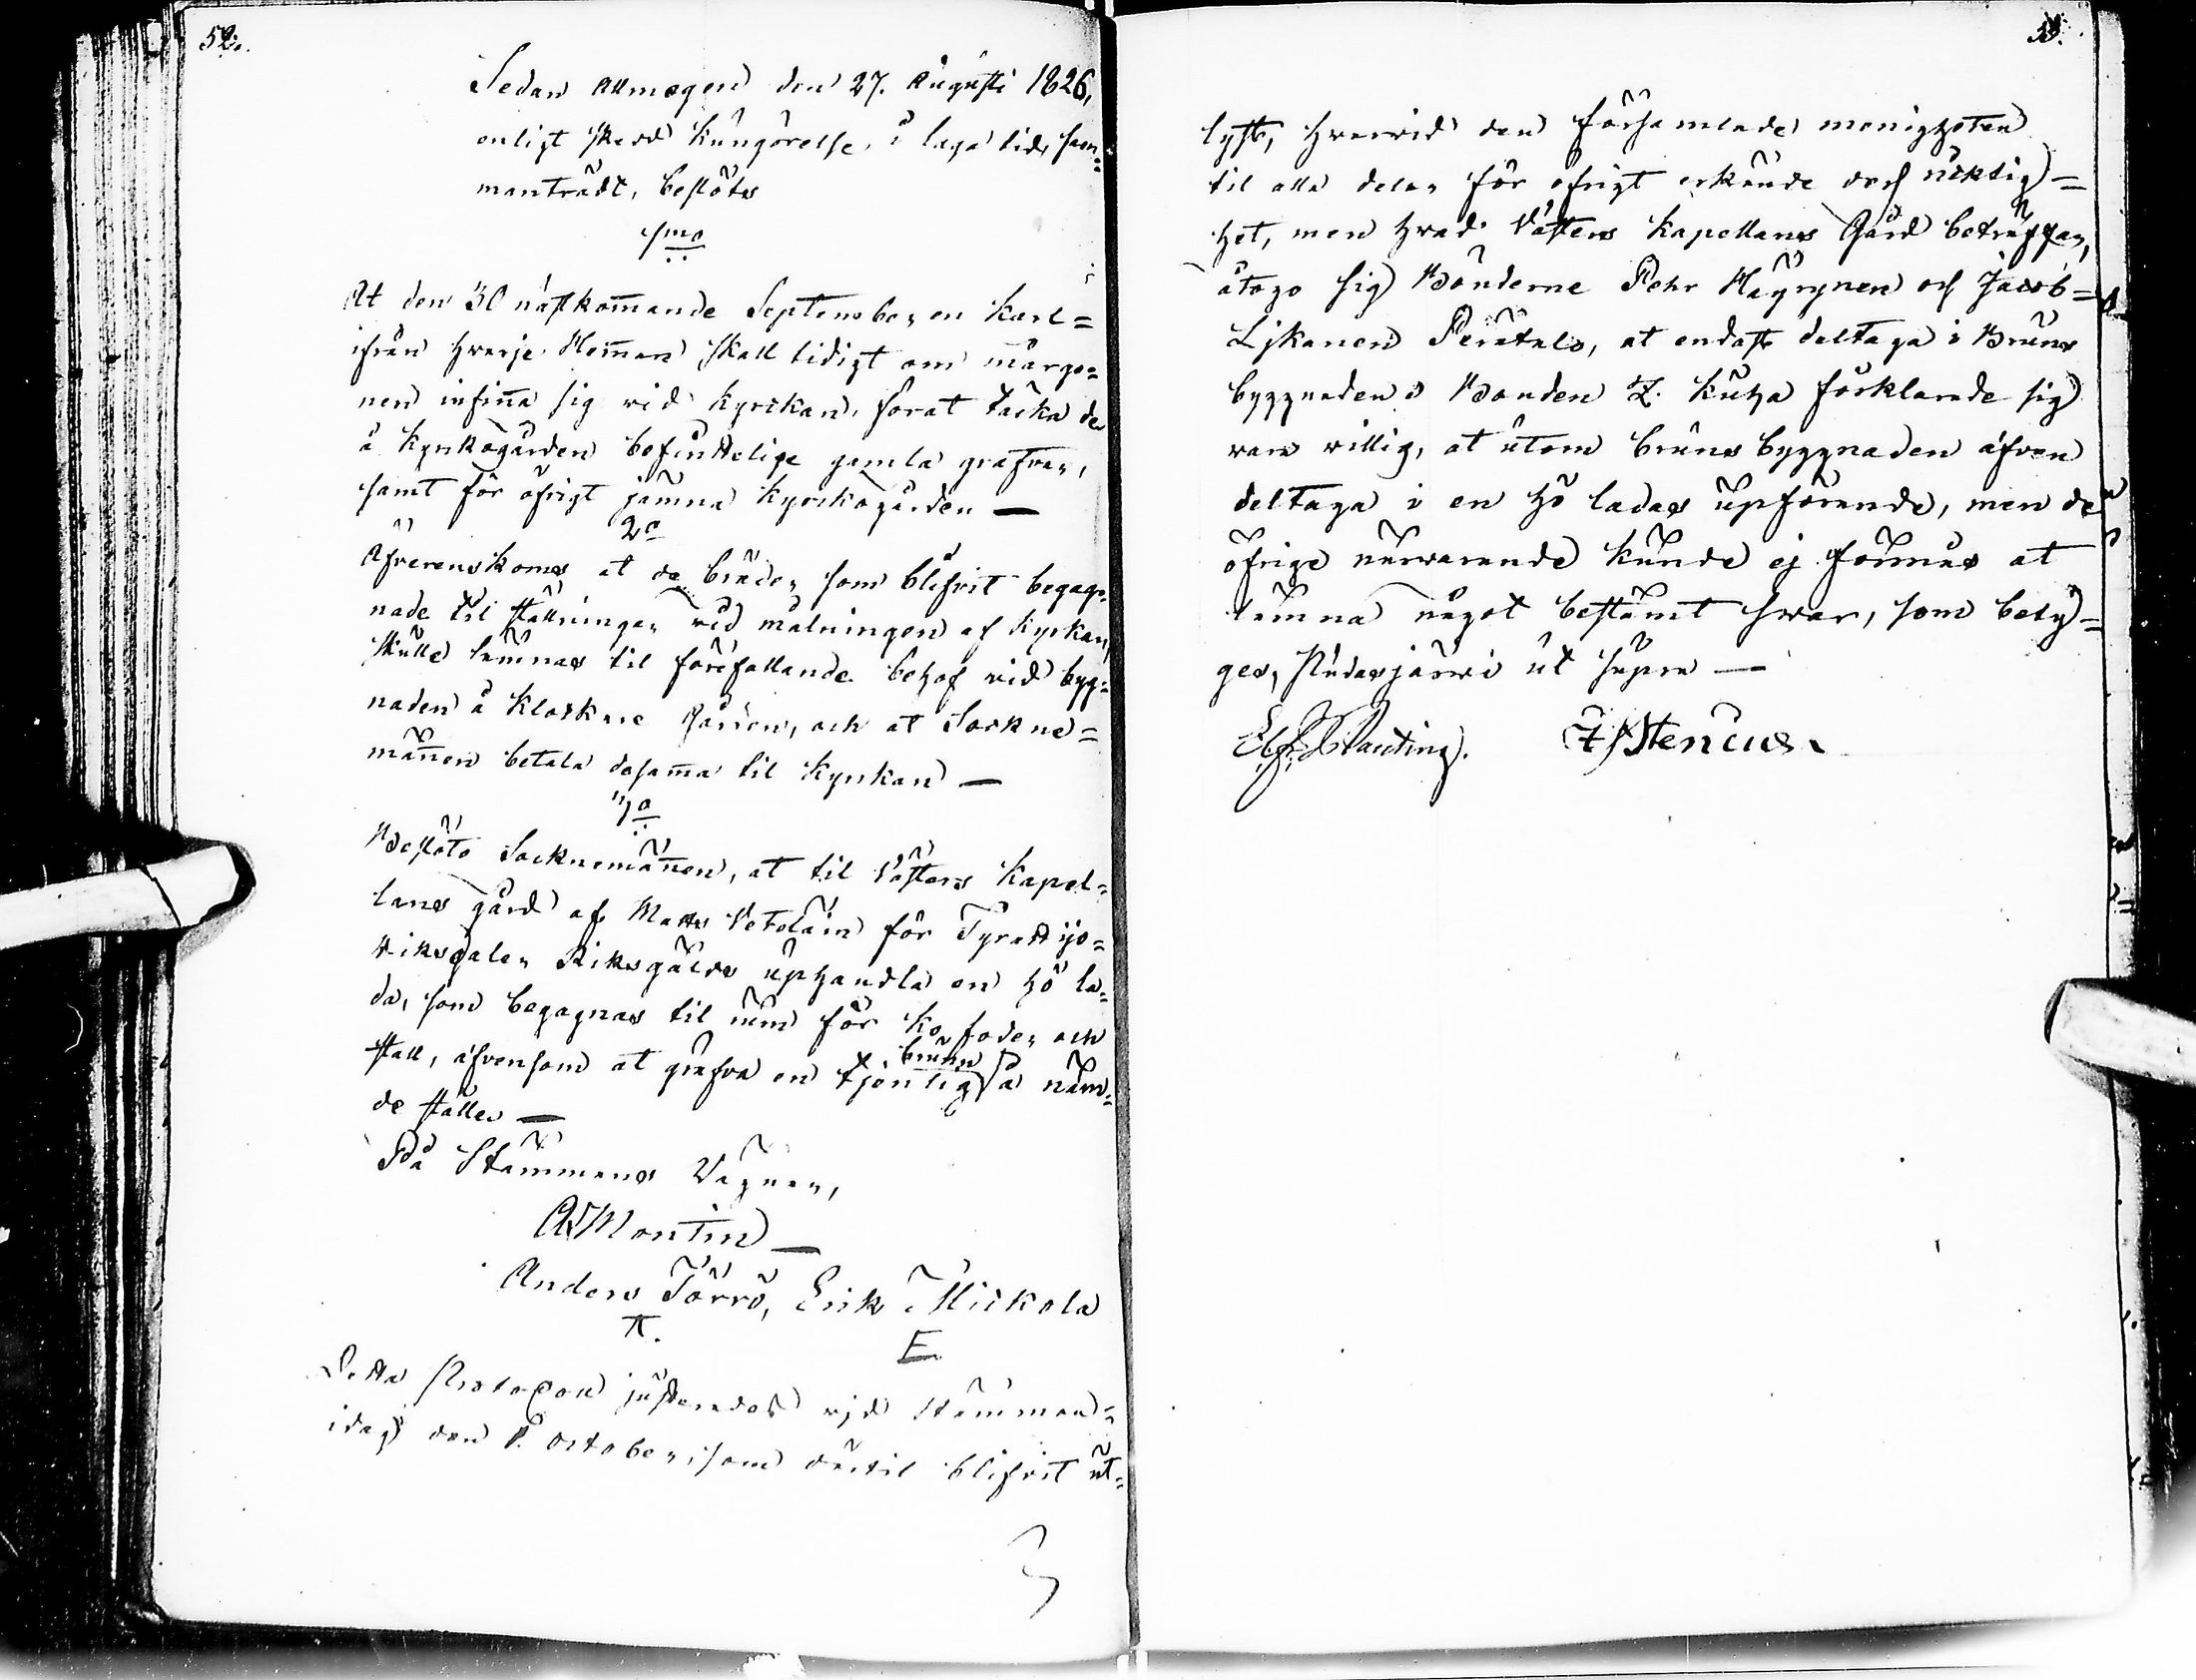 52.
Sedan Allmogen den 27. Augusti 1826,
enligt skedd Kungörelse, i laga tid, sam=
manträdt, beslöts
1mo
At den 30 nästkommande September en Karl=
ifrån hvarje Hemman skall tidigt om mårgo=
nen infinna sig vid Kyrckan, forat täcka de
å Kyrkogården befintelige gamla grafvar,
samt för öfrigt jämna Kyrckogården —
2o
Äfverenskoms at de bräder som blifvit begag=
nade til ställningar vid målningen af Kyrkan,
skulle lämnas til förefallande behof vid byg=
naden å Klockare Gården, och at Sockne=
männen betala desamma til Kyrkan —
3o
Beslöto Socknemännen, at til Västers Kapel=
lans gård af Matts Veteläin för Tyratttijo=
Riksdaler Riksgälds uphandla en hö la=
da, som begagnas til rum för Ko foder och
stall, äfvensom at gräfva en tjenlig brunn å näm=
de ställe —
På Stämmans Vägnar,
A Montin —
Anders Törrö, Erik Mickola
E
Detta Protocoll justerades vid Stämman=
idag den 8. October, som därtil blifvit ut=
53.
lyst, hvarvid den församlade menigheten
til alla delar för öfrigt erkände dess ricktig=
het, men hvad Västers Kapellans Gård beträffar,
åtogo sig Bönderne Pehr Häyrynen och Jacob=
Ljkanen Perätalo, at endast deltaga i Bruns
byggnaden Bonden Z. Kuha förklarade sig
vara villig, at utom bruns byggnaden äfven
deltaga i en hö ladas upförande, men de
öfrige närvarande kunde ej förmås at
lämna något bestämt svar, som bety=
ges, Pudasjärvi ut supra —
Stencius